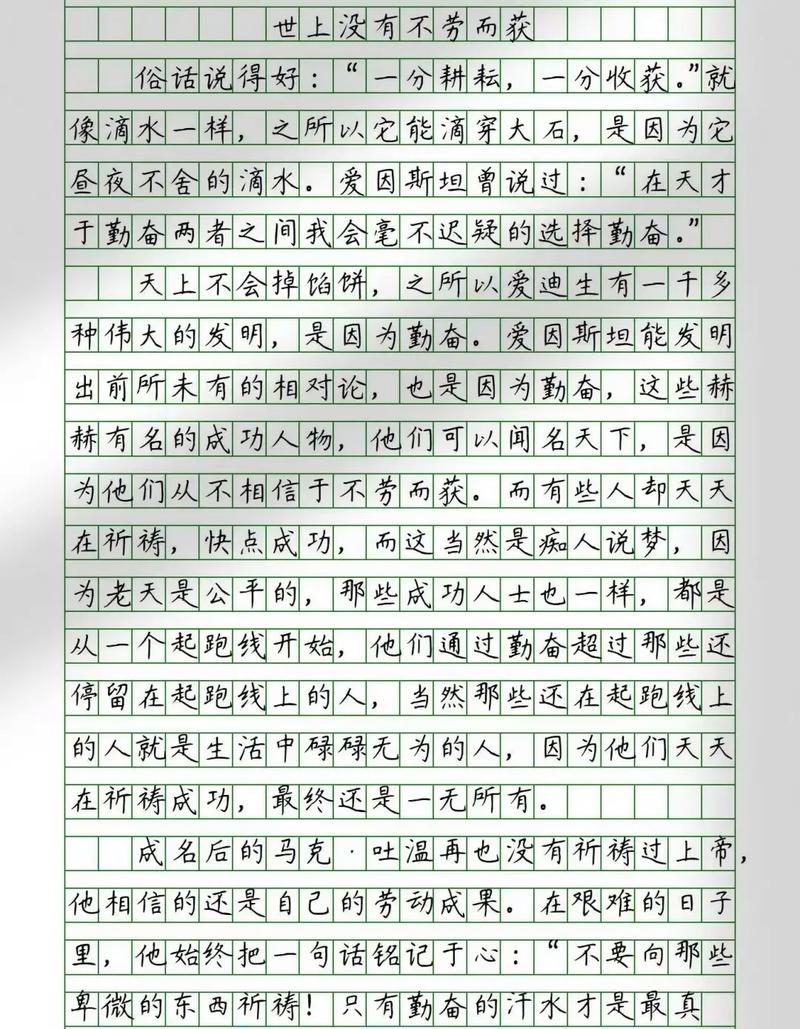 世上没有不劳而获
俗话说得好：“一分耕耘，一分收获。”就
像滴水一样，之所以它能滴穿大石，是因为它
昼夜不舍的滴水。爱因斯坦曾说过：“在天才
于勤奋两者之间我会毫不迟疑的选择勤奋。”
天上不会掉馅饼，之所以爱迪生有一千多
种伟大的发明，是因为勤奋。爱因斯坦能发明
出前所未有的相对论，也是因为勤奋，这些赫
赫有名的成功人物，他们可以闻名天下，是因
为他们从不相信于不劳而获。而有些人却天天
在祈祷，快点成功，而这当然是痴人说梦，因
为老天是公平的，那些成功人士也一样，都是
从一个起跑线开始，他们通过勤奋超过那些还
停留在起跑线上的人，当然那些还在起跑线上
的人就是生活中碌碌无为的人，因为他们天天
在祈祷成功，最终还是一无所有。
成名后的马克·吐温再也没有祈祷过上帝，
他相信的还是自己的劳动成果。在艰难的日子
里，他始终把一句话铭记于心：“不要向那些
卑微的东西祈祷！只有勤奋的汗水才是最真